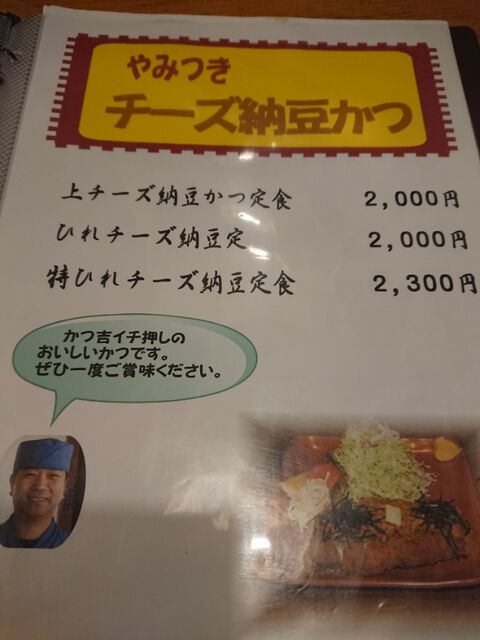 やみつき
チーズ納豆かつ
上チーズ納豆かつ定食 2,000円
ひれチーズ納豆定 2,000円
特ひれチーズ納豆定食 2,300円
かつ吉イチ押しの
おいしいかつです。
ぜひ一度ご賞味ください。